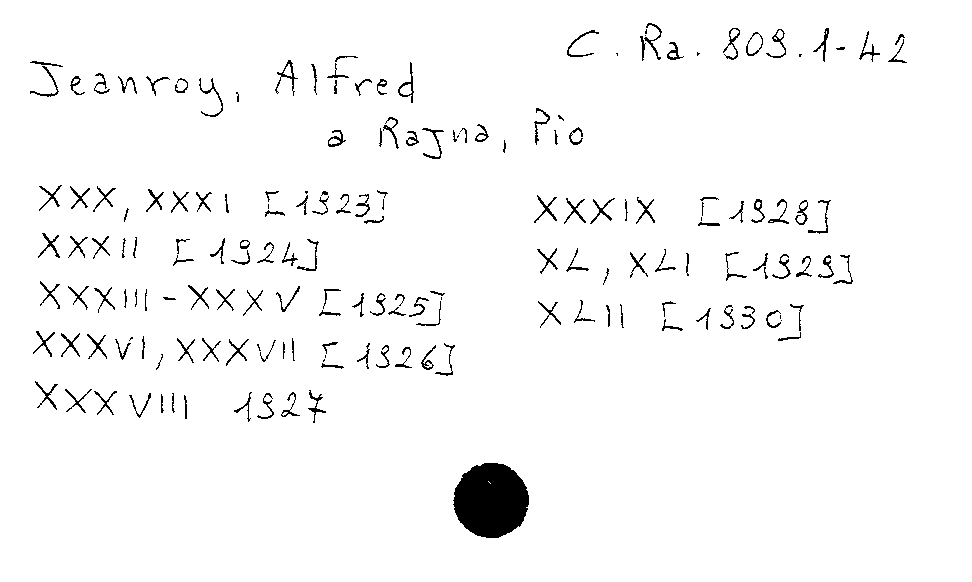 C. Ra. 809.1-42
Jeanroy, Alfred
a Rajna, Pio
XXX, XXXI [1923]
XXXII [1924]
XXXIII - XXXV [1925]
XXXVI, XXXVII [1926]
XXXVIII 1927
XXXIX [1928]
XL, XLI [1929]
XLII [1930]